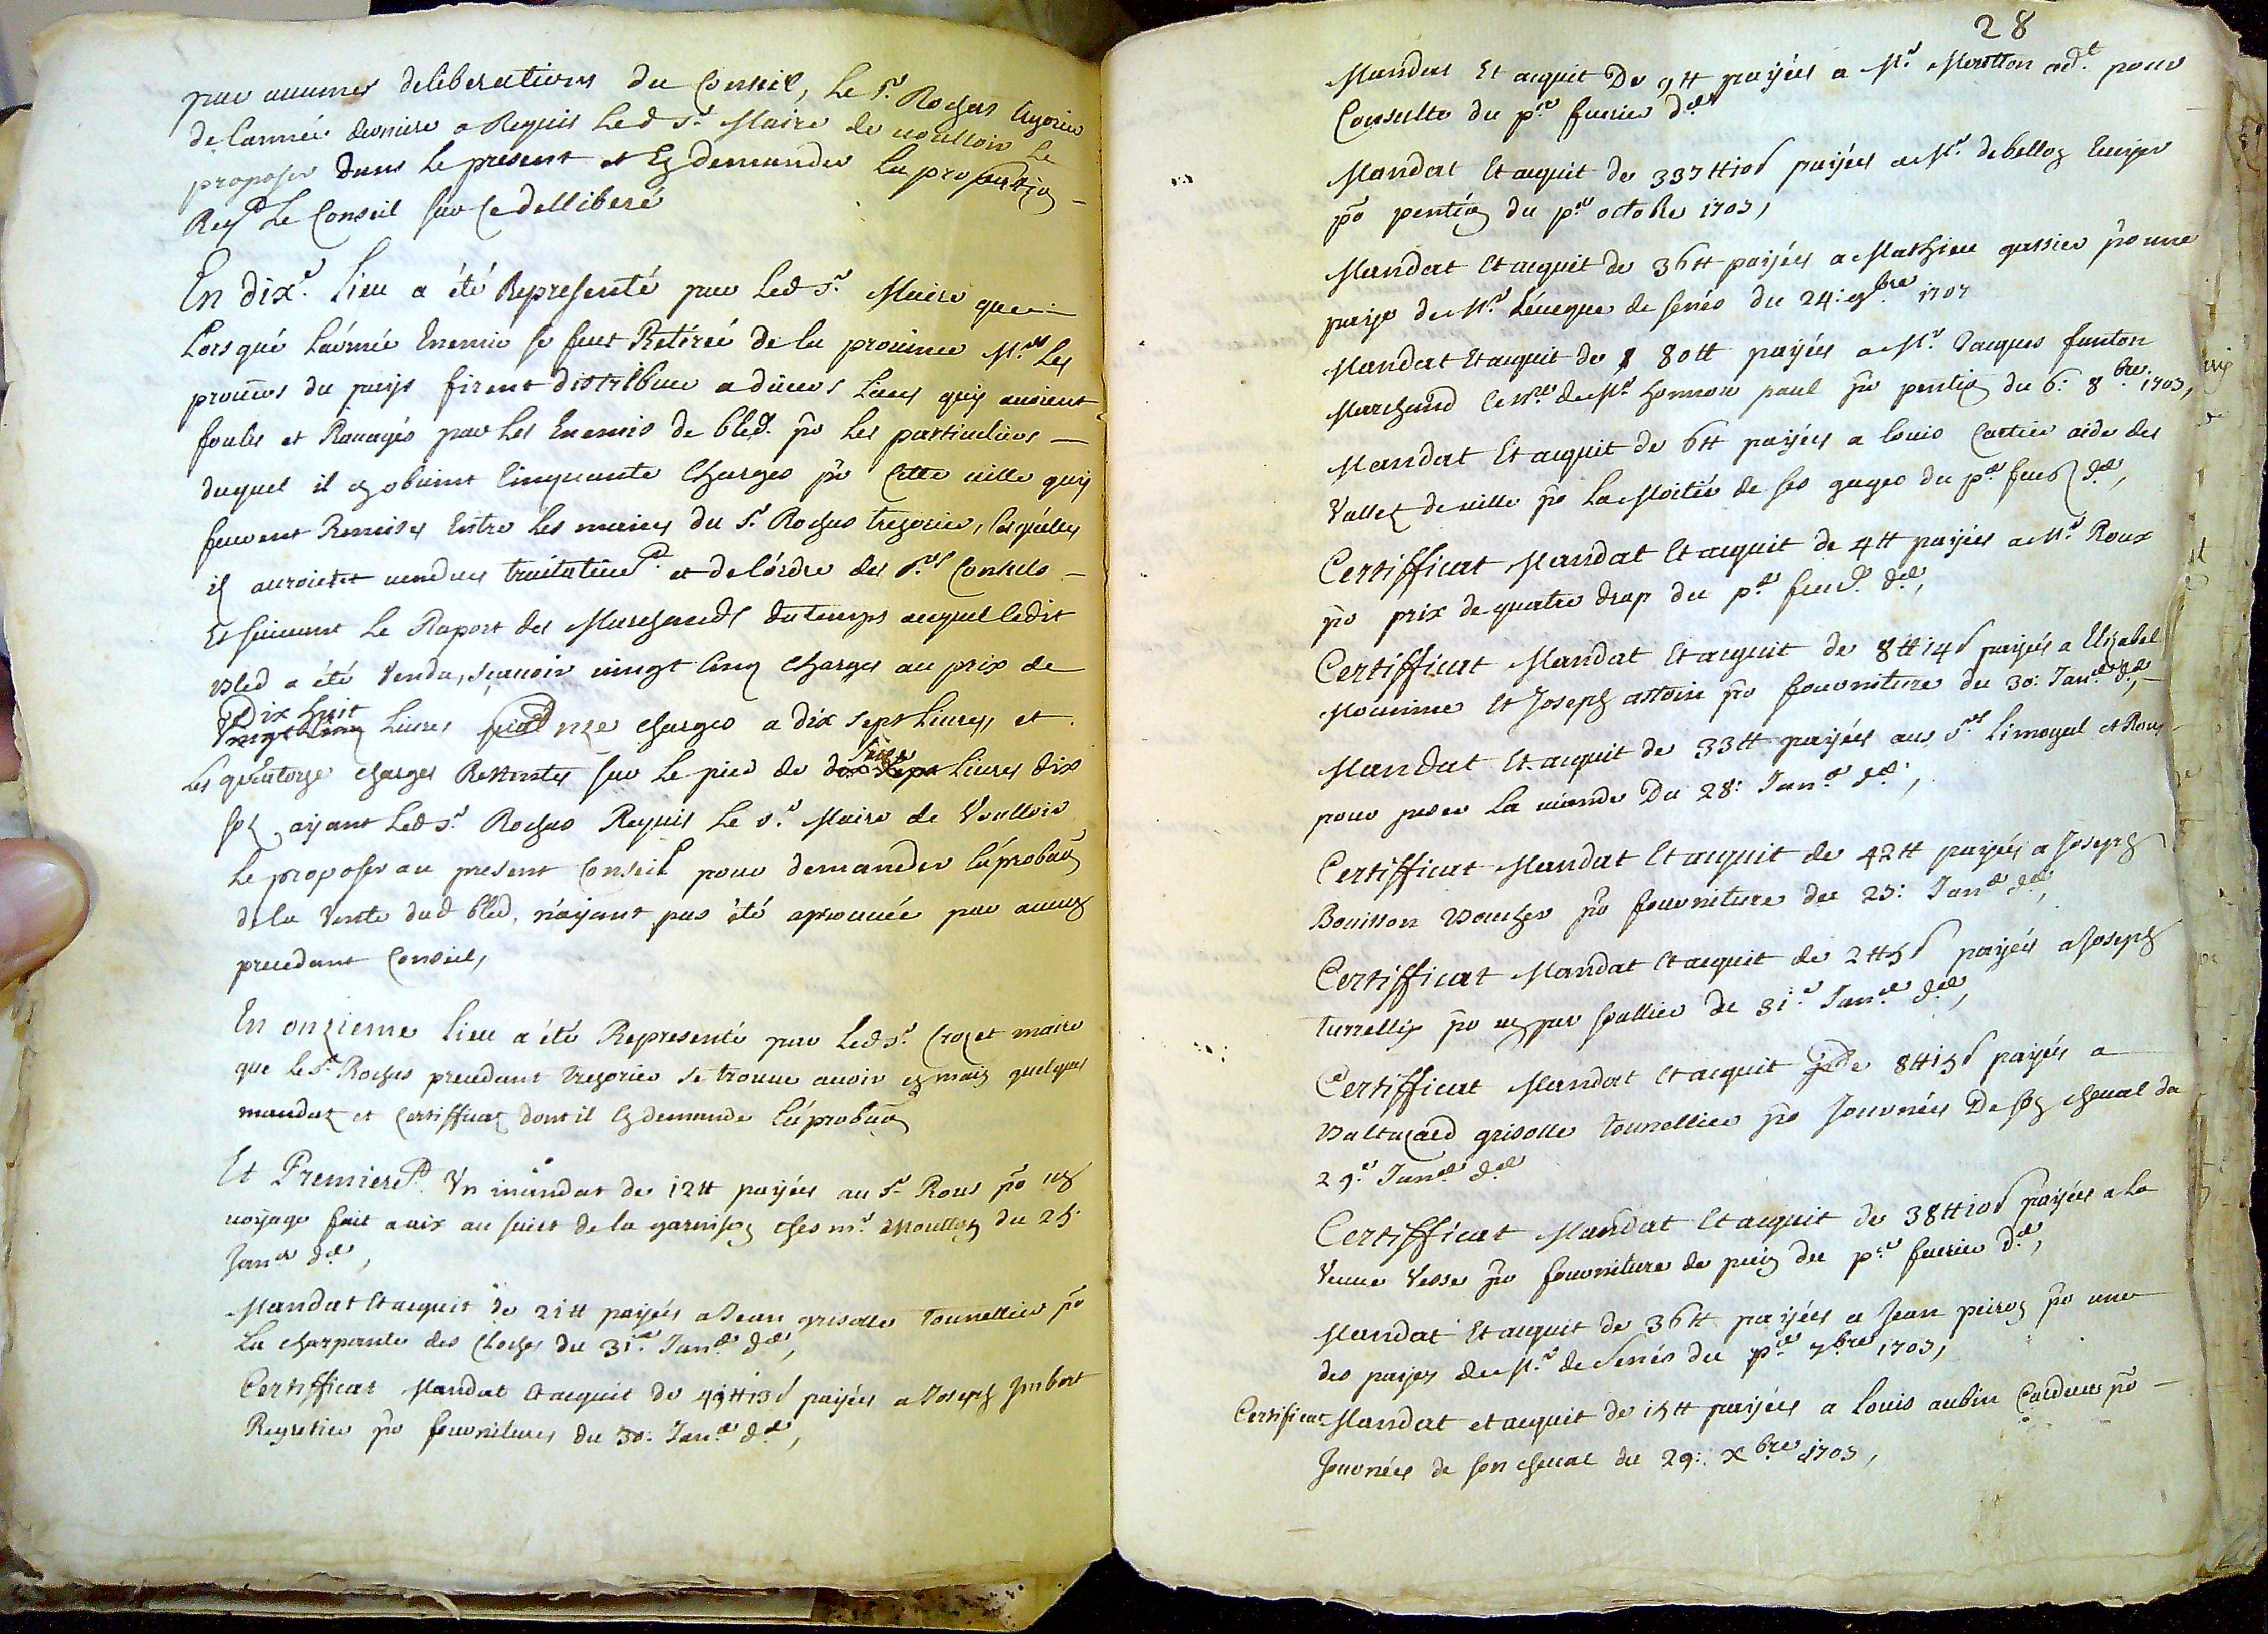 par aucunes deliberations du Conseil, Le Sr. Rochas tresorier
de lannée derniere a Requis Led Sr. Maire de voulloir Le
proposer dans Le present et En demander La probation
Req.t Le Conseil sur Ce dellibere
En dix.e Lieu a été Representé par Led Sr. Maire que
Lors qué L'armée Enemie se feut Retirée de la province Mrs. Les
proc.rs du pays firent distribuer a divers Lieux quy avoient
foulés et Ravagés par Les Enemis de bled. po Les particuliers
duquel il en obtint Cinquante Charges po Cette ville quy
feurent Remises Entre Les mains du Sr. Rochas tresorier, Lesquelles
il auroit et de L'ordre des Srs Consuls
Et suivant Le Raport des Marchands du temps auquel ledit
Bled a été Vendu, sçavoir vingt Cinq Charges au prix de
Dix huit
Livres onze charges a dix sept Livres, et
Les quatorze charges Restantes sur Le pied de seize Livres dix
sols ayant Led Sr. Rochas Requis Le Sr. Maire de Voulloir
Le proposer au present Conseil pour demander L'aprobaon
de la Vente dud bled, n'ayant pas été aprouvée par aucun
precedant Conseil,
En onzieme lieu a été Representé par Led Sr. Crozet maire
que le Sr. Rochas precedant Tresorier se trouve avoir en main quelques
mandats et Certifficats dont il En demande L'aprobaon
Et Premierem.t Vn mandat de 12 tt payées au Sr. Roux po un
voyage fait a aix au sujet de la garnison ches mr. Moullon du 25.
Janer d.e,
Mandat et acquit de 21 tt payées a Jean grisolle Tounellier po
La charpante des Cloches du 31.e Janer d.e,
Certifficat Mandat et acquit de 49 tt 13 s payées a Joseph Jmbert
Regretier po fournitures du 30. Janer d.e,
28
Mandat Et acquit De 9 tt payées a Mr. Moutton ad.t pour
Consulte du p.er fevrier d.e
Mandat Et acquit de 337 tt 10 s payées a Mr. debelloz
po pention du p.er octobre 1707,
Mandat Et acquit de 36 tt payées a Mathieu gassier po une
paye de Mr. Léveque de senés du 24: 9bre 1707
Mandat Et acquit de 80 tt payées a Mr. Jacques fanton
Marchand de Mr honnore paul po pention du 6: 8bre. 1707,
Mandat Et acquit de 6 tt payées a louis Cartier aide des
Vallet de ville po La Moitié de ses gages du p.er d.e,
Certifficat Mandat Et acquit de 4 tt payées a Mr Roux
po prix de quatre drap du p.er d.e,
Certifficat Mandat Et acquit de 8 tt 14 s payées a Elizabel
Mourine Et Joseph astoin po fourniture du 30: Janer d.e,
Mandat Et acquit de 33 tt payées aux Srs Limoyal et Roux
pour peser La viande Du 28: Janer d.e,
Certifficat Mandat Et acquit de 42 tt payées a Joseph
Bouisson Boucher po fourniture du 25: Janer d.e,
Certifficat Mandat Et acquit de 2 tt 5 s payées a Joseph
Turrellis po de 31.e Janer d.e,
Certifficat Mandat Et acquit de 8 tt 15 s payées a
Baltazard grisolle Tounellier po Journées De son cheval du
29.e Janer d.e
Certifficat Mandat Et acquit de 38 tt 10 s payées a La
Veuve Vesse po fourniture de pain du p.er fevrier d.e,
Mandat Et acquit de 36 tt payées a Jean peiron po une
des payes de Mr. de Senés du p.er 7bre 1707,
Certificat Mandat et acquit de 15 tt payées a Louis aubin Cardeur po
Journées de son cheval du 29: Xbre 1707,